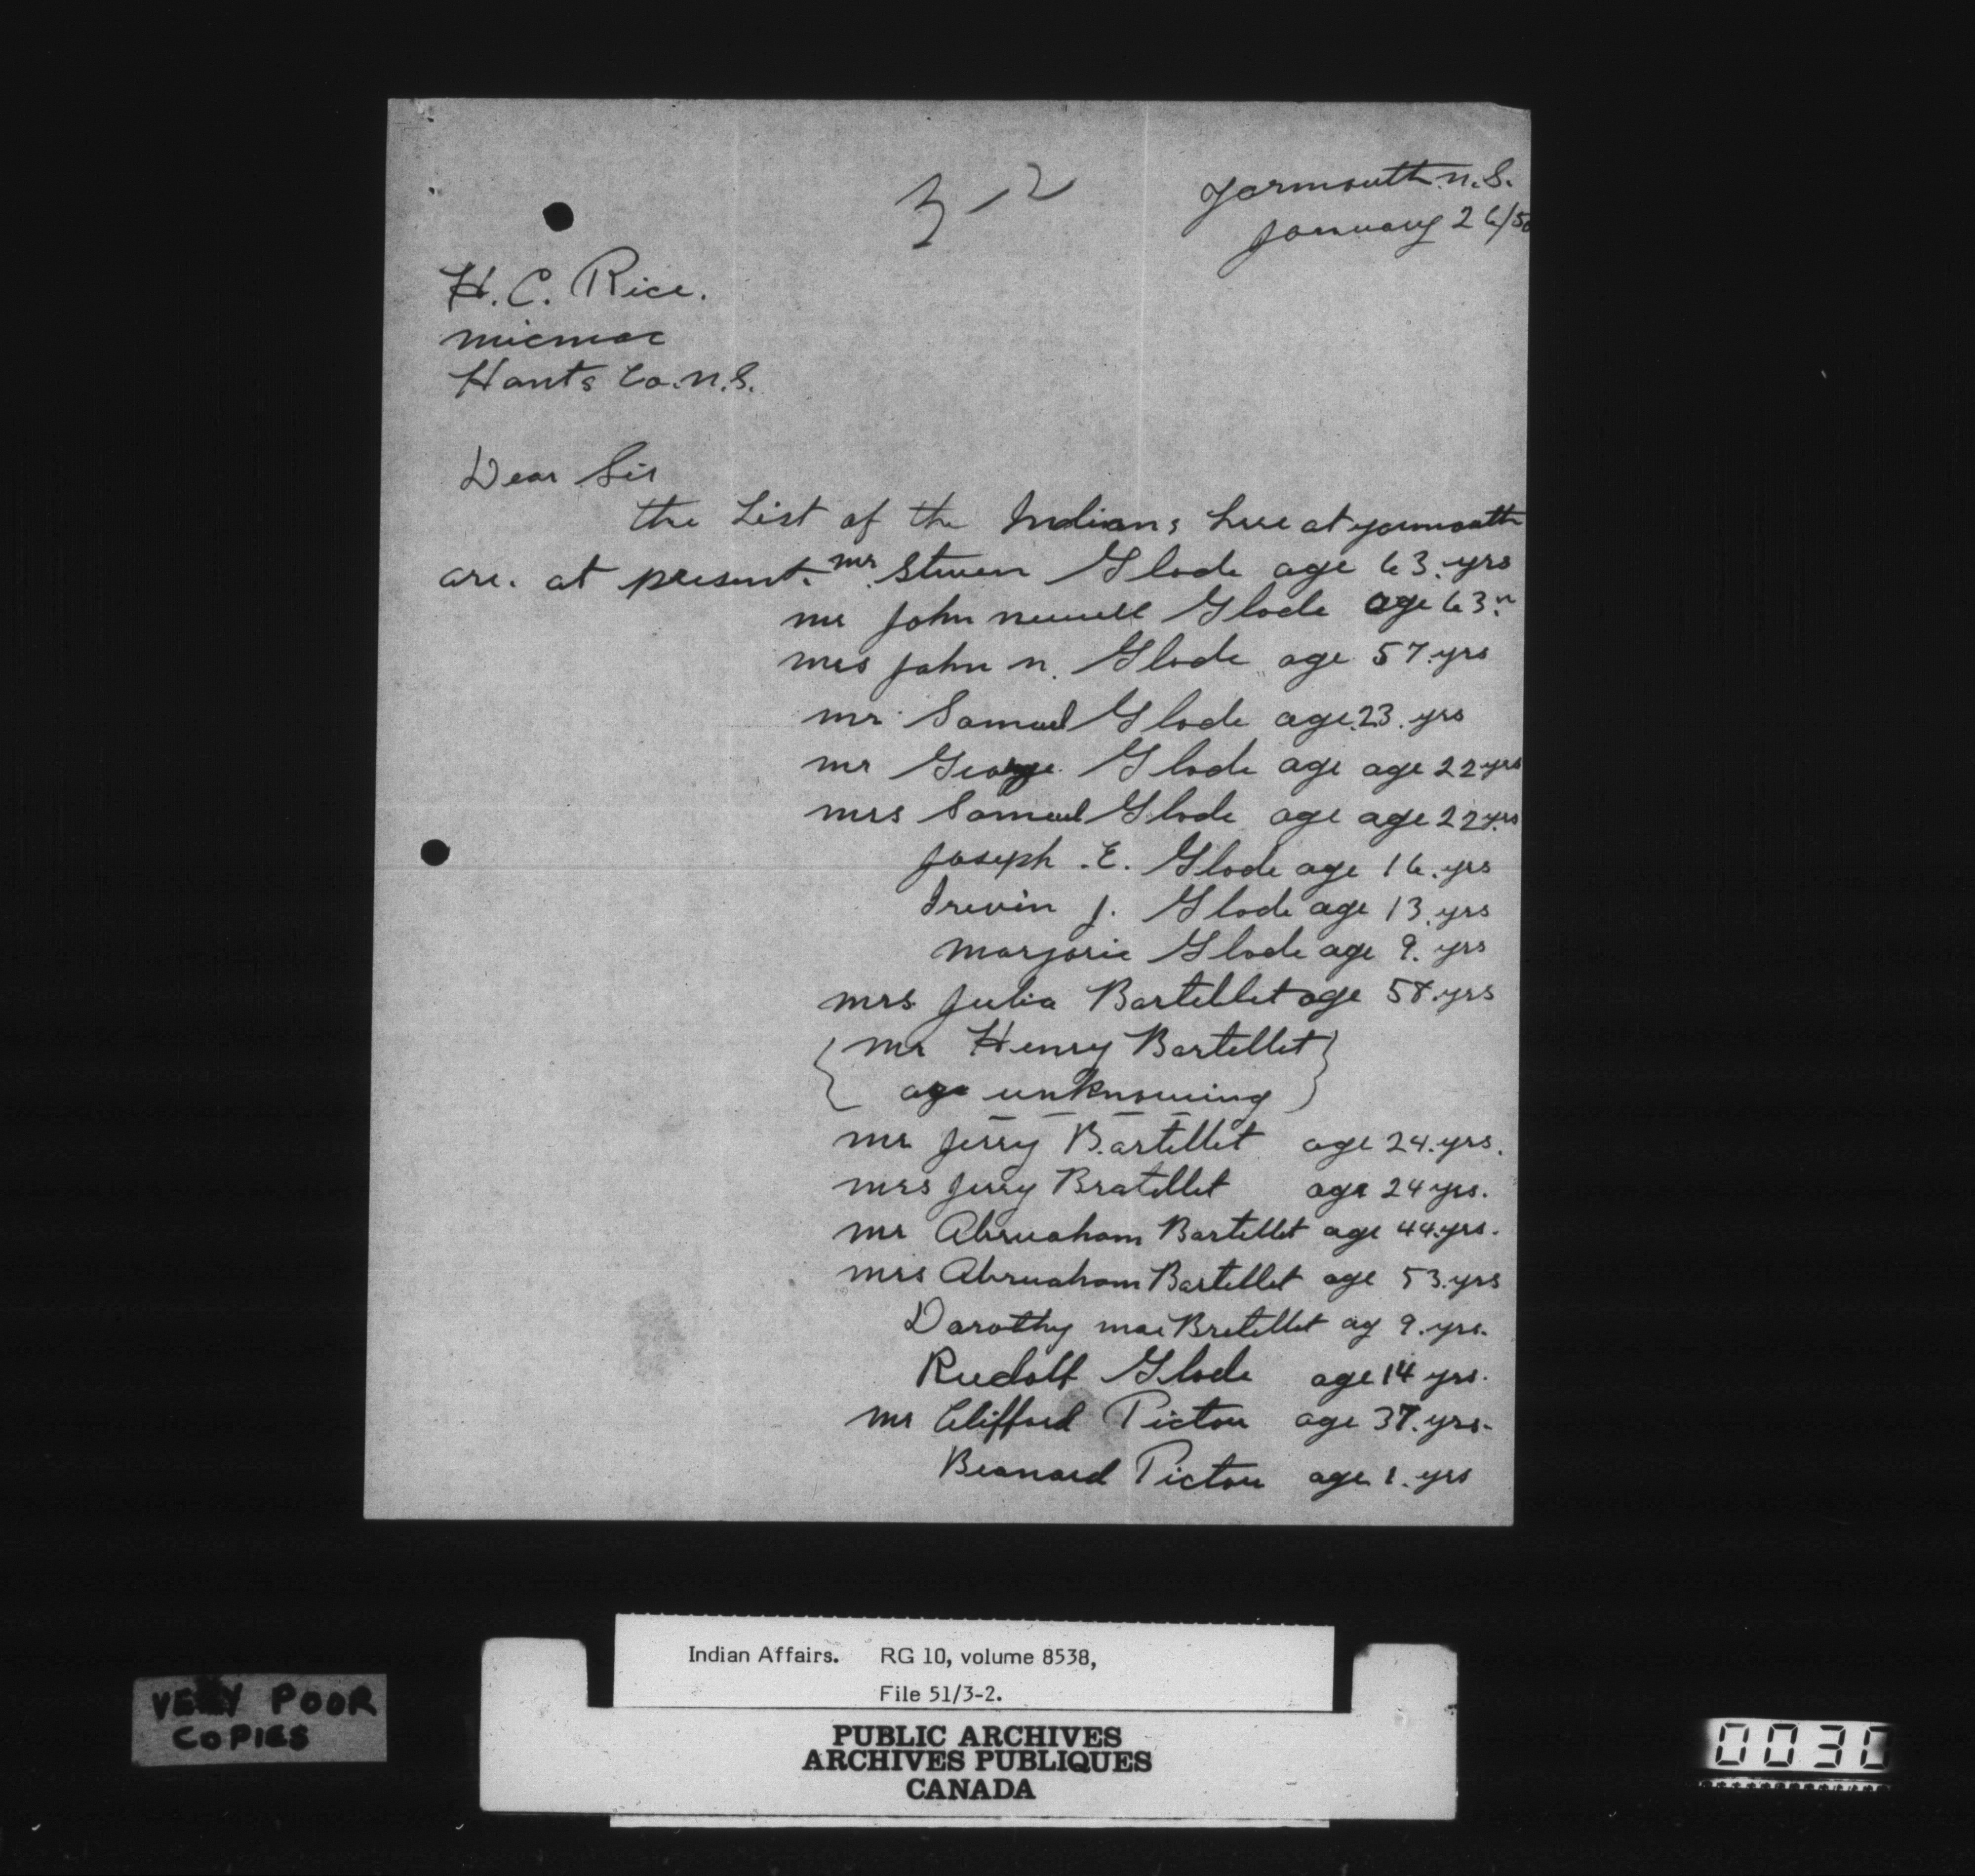 3-2
Yarmouth N.S.
January 26/50
H. C. Rice.
Micmac
Hants Co. N.S.
Dear Sir
the List of the Indians here at yarmouth
are. at present. mr. Steven Glode age 63. yrs
mr John newell Glode age 63. "
mrs John n. Glode age 57. yrs
mr. Samuel Glode age. 23. yrs
mr George Glode age age 22 yrs
mrs Samuel Glode age age 22 yrs
Joseph . E. Glode age 16. yrs
Irevin J. Glode age 13. yrs
Marjorie Glode age 9. yrs
mrs Julia Bartellet age 58. yrs
{ mr Henry Bartellet }
{ age unknowing }
mr Jerry Bartellet age 24. yrs.
mrs Jerry Bratellet age 24 yrs.
mr Abruaham Bartellet age 44. yrs.
mrs Abruaham Bartellet age 53. yrs
Dorothy mae Bretellet ag 9. yrs.
Rudolf Glode age 14 yrs.
mr Clifford Pictou age 37. yrs.
Beanard Pictou age 1. yrs
Indian Affairs. RG 10, volume 8538,
File 51/3-2.
PUBLIC ARCHIVES
ARCHIVES PUBLIQUES
CANADA
VERY POOR
COPIES
0030